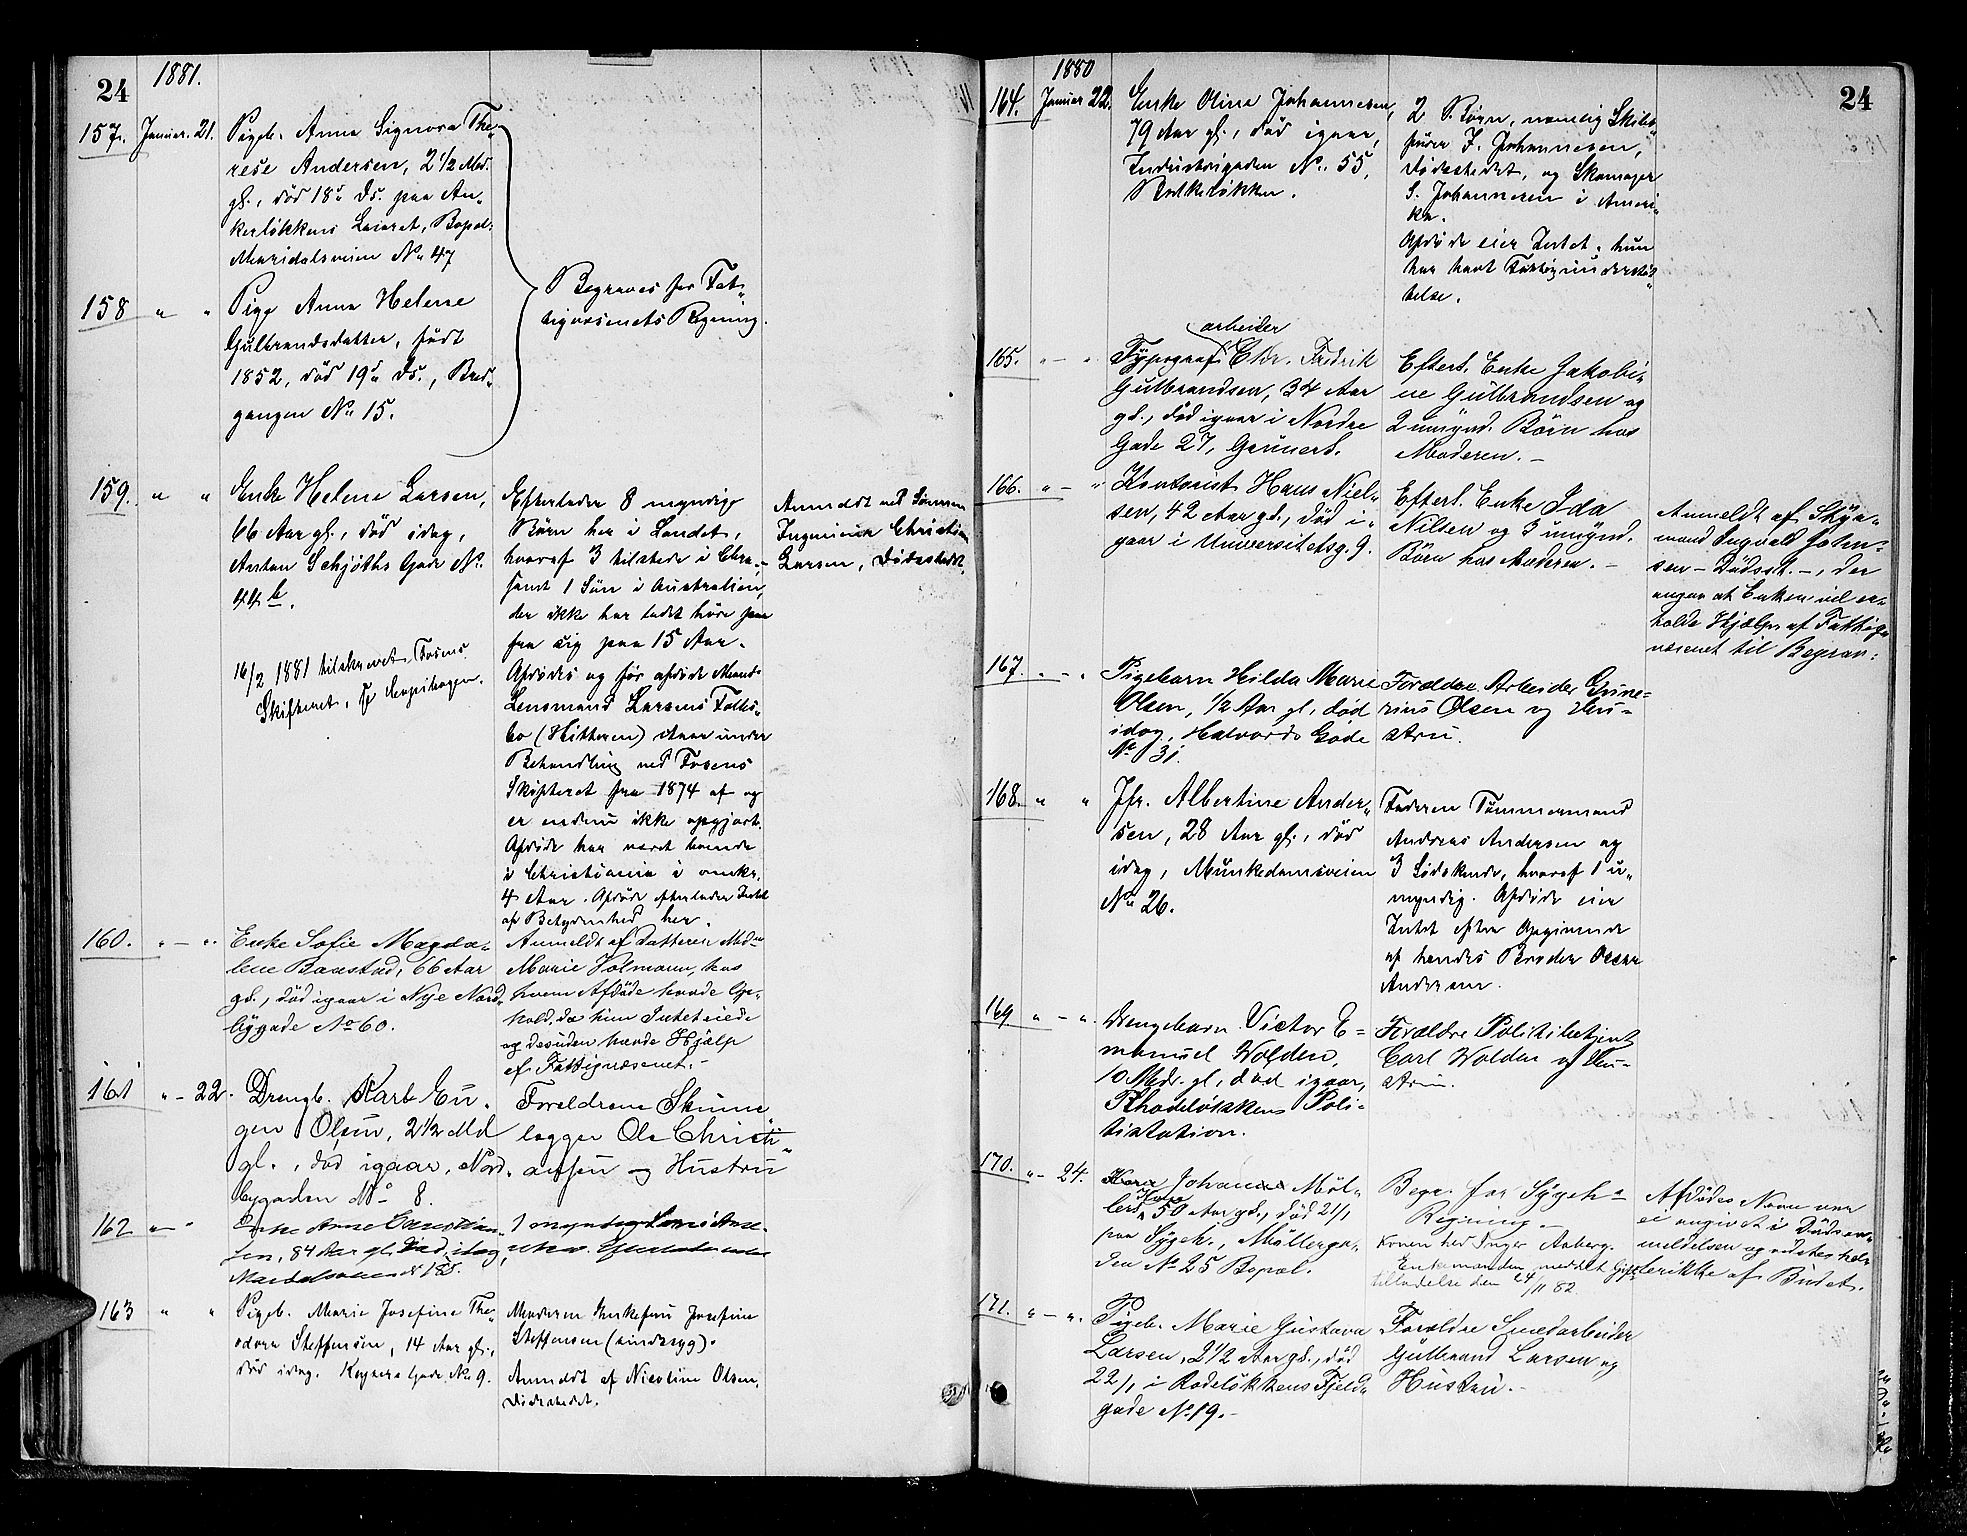 24
1881.
157. Januar. 21.
Pigeb. Anna Signora The„
rese Andersen, 2 1/2 Md.
gl., död 18de Ds. paa An„
kerlökkens Lazaret, Bopæl:
Maridalsveien No 47
158 „ „
Pige Anna Helene
Gulbrandsdatter, født
1852, död 19de Ds., Bred„
gangen No 15.
Begraves for Fat„
tigvæsenets Regning.
159. „ „
Enke Helene Larsen,
66 Aar gl., död idag,
Anton Schjøths Gade No.
44 b.
16/2 1881 tilskrevet Fosens
Skifteret, se Copibogen.
Efterlader 8 myndige
Børn her i Landet,
hvoraf 3 tilstede i Chra.,
samt 1 Søn i Australien,
der ikke har ladet høre
fra sig paa 15 Aar.
Afdødes og før afdøde Mands
Lensmand Larsens Fælles„
bo (Hitteren) staar under
Behandling ved Fosens
Skifteret fra 1874 af og
er endnu ikke opgjort.
Afdøde har været boende
i Christiania i omkr.
4 Aar. Afdøde efterlader Intet
af Betydenhed her.
Anmeldt ved Sønnen
Ingeniør Christian
Larsen, Dødsstedet.
160. „ — „
Enke Sofie Magda„
lene Baastad, 66 Aar
gl., död igaar i Nye Nord„
bygade No 60.
Anmeldt af Datteren Md.
Marie Holmann, hos
hvem Afdøde havde Op„
hold, da hun Intet eiede
og desuden havde Hjælp
af Fattigvæsenet. —
161 „ — 22.
Drengb. Karl Eu„
gen Olsen, 2 1/2 Md
gl., död igaar, Nord„
bygaden No 8.
Forældrene Skuma„
legger Ole Christi„
ansen og Hustru
162 „ — „
Enke Anne Christian„
sen, 84 Aar gl. död idag,
Maridalsveien No 185.
1 myndig Søn i Ame„
163 „ „
Pigeb. Marie Josefine The„
odora Steffensen, 14 Aar gl.,
död idag. Keysers Gade No 9.
Moderen Enkefru Josefine
Steffensen (sindssyg).
Anmeldt af Nicoline Olsen,
Dødsstedet.
24
1880
164. Januar 22.
Enke Oline Johannesen,
79 Aar gl., död igaar,
Industrigaden No. 55,
Balkeløkken.
2 Børn, nemlig Skibs„
fører J. Johannesen,
Dødsstedet, og Skomager
S. Johannesen i Ameri„
ka.
Afdøde eier Intet, hun
har havt Fattigunderstøt„
telse.
165. „ — „
arbeider
Typograf Chr. Fredrik
Gulbrandsen, 34 Aar
gl., död igaar i Nordre
Gade 27, Grünerl.
Efterl. Enke Jakobi„
ne Gulbrandsen og
2 umynd. Börn hos
Moderen. —
166. „ — „
Kontorist Hans Niel„
sen, 42 Aar gl., död i„
gaar i Universitetsg. 9.
Efterl. Enke Ida
Nilsen og 3 umynd.
Börn hos Moderen. —
Anmeldt af Styr„
mand Ingvald John„
sen — Dödsst. —, der
angav at Enken vil er„
holde Hjælp af Fattig„
væsenet til Begrav„
167. „ — „
Pigebarn Hilda Marie
Olsen, 1/2 Aar gl., död
idag, Halvards Gade
No 31.
Forældre Arbeider Gune„
rius Olsen og Hu„
stru.
168. „ „
Jfr. Albertine Ander„
sen, 28 Aar gl., död
idag, Munkedamsveien
No 26.
Faderen Tømmermand
Andreas Andersen og
3 Sødskende, hvoraf 1 u„
myndig. Afdøde eier
Intet efter Opgivende
af hendes Broder Oscar
Andersen.
169 „ — „
Drengebarn Victor E„
manuel Wolden,
10 Mdr. gl., död igaar,
Rhodeløkkens Poli„
tistation.
Forældre Politibetjent
Carl Wolden og Hu„
stru.
170. „ — 24.
Kone Johanne Möl„
lers Kone 50 Aar gl., död 21/1
paa Sygeh., Møllerga„
den No 25 Bopæl.
Begr. for Sygeh.s
Regning. —
Konen hed Inger Aaberg.
Enkemanden meddelt Gifte
tilladelse den 24/11 82.
Afdödes Navn var
ei angivet i Dödsan„
meldelsen og vidstes hel„
ler ikke af Budet.
171. „ — „.
Pigeb. Marie Gustava
Larsen, 2 1/2 Aar gl., död
22/1 i Rodeløkkens Fjeld„
gade No. 19. —
Forældre Smedarbeider
Gulbrand Larsen og
Hustru. —